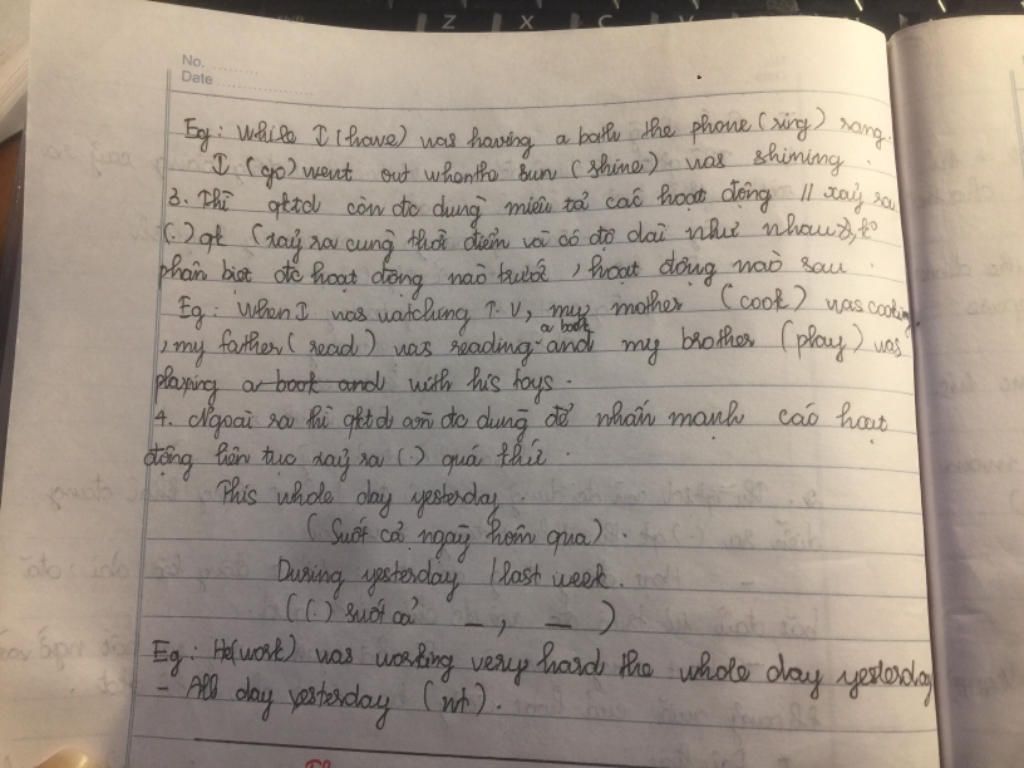 Z X C V
No. ..........
Date ....................
Eg: While I (have) was having a bath the phone (ring) rang.
I (go) went out when the sun (shine) was shining.
3. Thì qktd còn đc dùng miêu tả các hoạt động // xảy ra
(.) qk (xảy ra cùng thời điểm và có độ dài như nhau),
phân biệt đc hoạt động nào trước, hoạt động nào sau.
Eg: When I was watching T.V, my mother (cook) was cooking
a book
, my father (read) was reading and my brother (play) was
playing a book and with his toys.
4. Ngoài ra thì qktd còn đc dùng để nhấn mạnh các hoạt
động liên tục xảy ra (.) quá khứ.
This whole day yesterday.
(Suốt cả ngày hôm qua).
During yesterday / last week.
((.) suốt cả _ , _ )
Eg: He (work) was working very hard the whole day yesterday
- All day yesterday (nt).